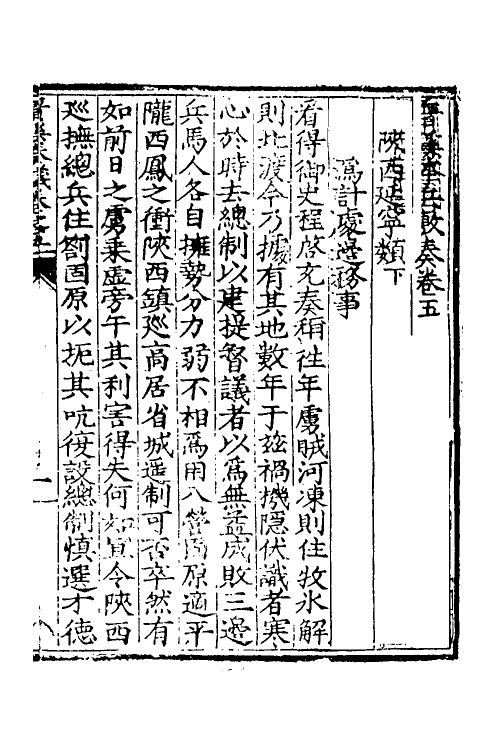 本兵敷奏卷五
陝西延寧類下
爲計處邊務事
看得御史程啓充奏稱往年虜賊河凍則住牧氷解
則北渡今乃據有其地數年于兹禍機隱伏識者寒
心於時去總制以建提督議者以爲無益成敗三邊
兵馬人各自擁勢分力弱不相爲用八營固原適平
隴西鳳之衝陝西鎮廵高居省城遥制可否卒然有
如前日之虜乘虚旁午其利害得失何如宜令陝西
廵撫總兵住劄固原以扼其吭復設總制慎選才德